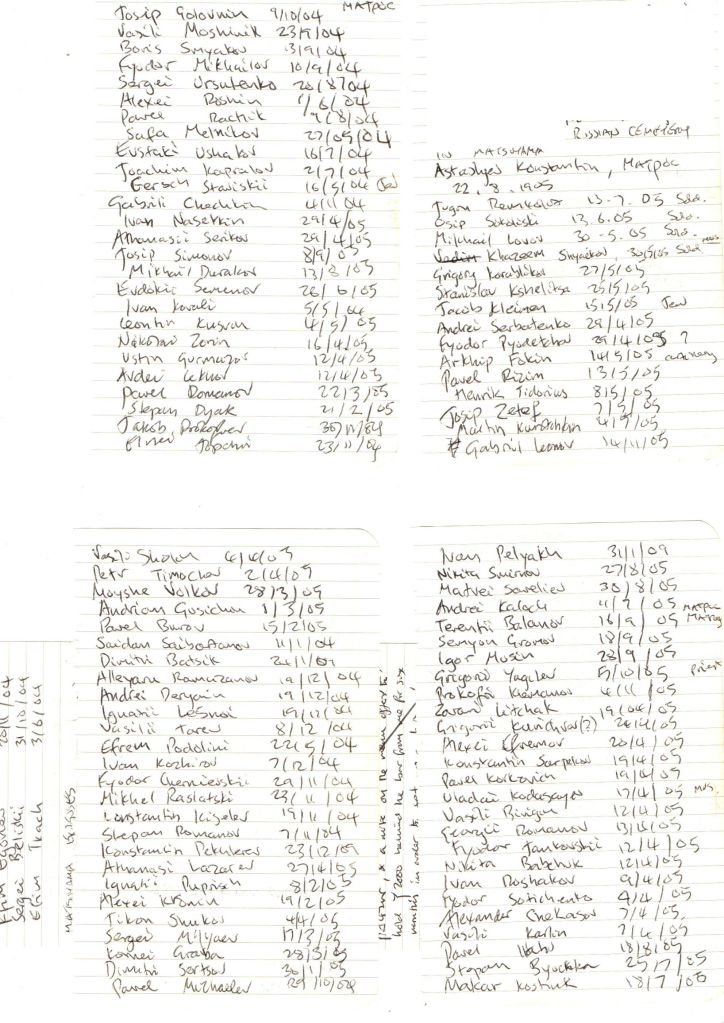 Josip Golovnin 9/10/04 МАТРОС
Vasili Moshinik 23/9/04
Boris Smyakov 3/9/04
Fyodor Mikhailov 10/9/04
Sergei Ursutenko 20/8/04
Alexei Roshin 1/6/04
Pavel Rachik 9/8/04
Safa Melnikov 27/05/04
Evstaki Ushakov 16/7/04
Joachim Kapralov 2/7/04
Gersch Staviskii 16/5/04 (Jew)
Gabrili Chechkin 4/11/04
Ivan Nasetkin 29/4/05
Athanasii Serikov 29/4/05
Josip Simonov 8/9/05
Mikhail Durakov 13/8/05
Evdokii Semenov 26/6/05
Ivan Kovali 5/5/04
Leontin 4/5/05
Nikolai Zorin 16/4/05
Ustin Gurmazov 12/4/05
Avdei 12/4/05
Pavel Romanov 22/3/05
Stepan Dyak 21/2/05
Jakob Prokofiev 30/11/04
23/11/04
RUSSIAN CEMETERY
IN MATSUYAMA
Astashyev Konstantin, МАТРОС
22.8.1905
13-7.05 Sold.
Osip Sokolski 13.6.05 Sold.
Mikhail Lovov 30-5.05 Sold.
Khazeem 30/5/05 Sold MUS
Grigory Korablikov 27/5/05
Stanislav Kshelitsa 25/5/05
Jacob Kleimen 15/5/05 Jew
Andrei Serbatenko 29/4/05
Fyodor Pyodetchov 29/4/05 ?
Arkhip Fokin 14/5/05 cavalry
Pavel Rizim 13/5/05
Henrik Tidorius 8/5/05
Josip Zetef 7/5/05
Martin 4/5/05
Gabriil Leonov 14/11/05
Vasili 4/4/05
Petr Timochov 2/4/05
Moyshe Volkov 28/3/05
Andrian Gusichon 1/3/05
Pavel Burov 15/2/05
Saidan Saibattanov 11/1/04
Dimitri Batsik 24/1/04
Alleyam Ramurzanov 19/12/04
Andrei Deryain 19/12/04
Ignatii Lesnoi 19/12/04
Vasilii Tarev 8/12/04
Efrem Podolini 22/5/04
Ivan Kozhirov 7/12/04
Fyodor Chernievskii 29/11/04
Mikhel Raslatski 23/11/04
Konstantin Kiselev 19/11/04
Stepan Romanov 7/11/04
Konstantin Pekulerev 23/12/04
Athanasi Lazarev 27/4/05
Ignatii Pupish 8/2/05
Alexei Kronin 19/2/05
Tikon Shukov 4/4/05
Sergei Milyaev 17/3/05
Kornei Graba 28/3/05
Dimitri Sertsov 30/1/05
Pavel Michaelev 29/10/04
Efim Egorov 20/11/04
Sergei Beliski 31/10/04
Efim Tkach 3/6/04
MATSUYAMA GRAVES
Ivan Pelyakh 31/1/09
Nikita Smirnov 27/8/05
Matvei Saveliev 30/8/05
Andrei Kalach 11/7/05 МАТРОС
Terentii Balanov 16/9/05 МАТРОС
Semyon Gromov 18/9/05
Igor Musin 28/9/05
Gregorii Yagilev 5/10/05 priest
Prokofii Klemanov 4/11/05
Zaran Litchak 19/04/05
Grigorii Kurichva(?) 24/4/05
Alexei Efremov 20/4/05
Konstantin Sarpekov 19/4/05
Pavel Korkovich 19/4/05
Vladai Kodasayev 17/4/05 MUS
Vasili Binigin 12/4/05
Georgii Romanov 13/12/05
Fyodor Jankovskii 12/4/05
Nikita Babchuk 12/4/05
Ivan Roshakov 9/4/05
Fyodor Sotichenko 9/4/05
Alexander Chekasov 7/4/05
Vasili Karlin 7/4/05
Pavel 18/8/05
Stepan 25/7/05
Makar Kostiuk 18/7/05